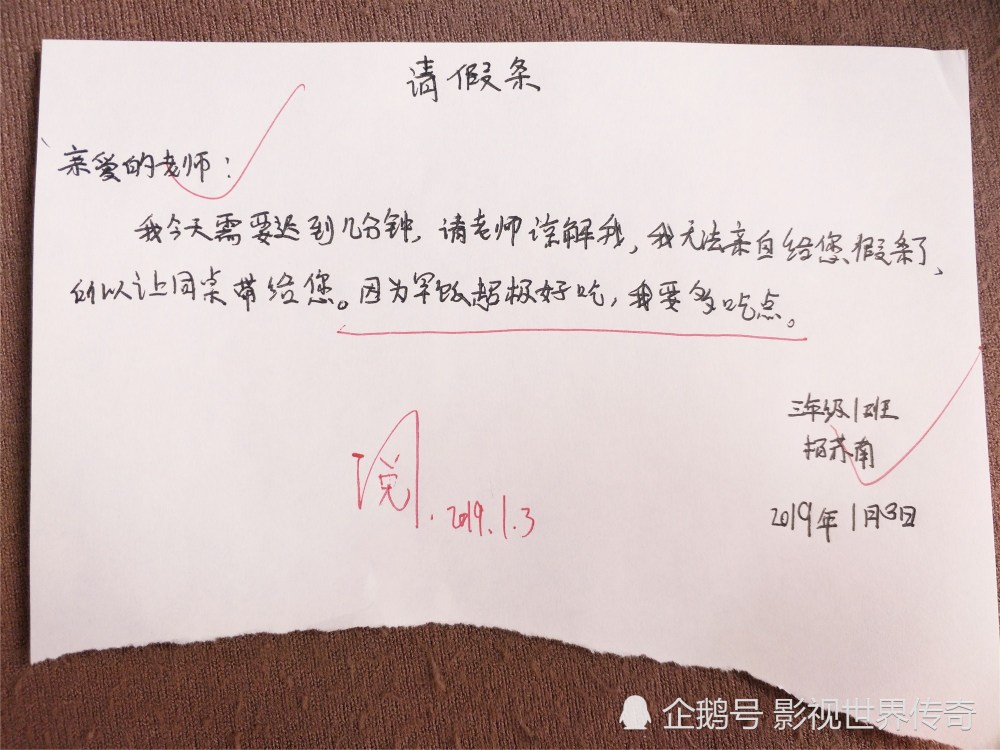 请假条
亲爱的老师：
我今天需要迟到几分钟，请老师谅解我，我无法亲自给您假条了，
所以让同桌带给您。因为早饭超极好吃，我要多吃点。
三年级1班
杨苏南
阅.2019.1.3
2019年1月3日
企鹅号 影视世界传奇